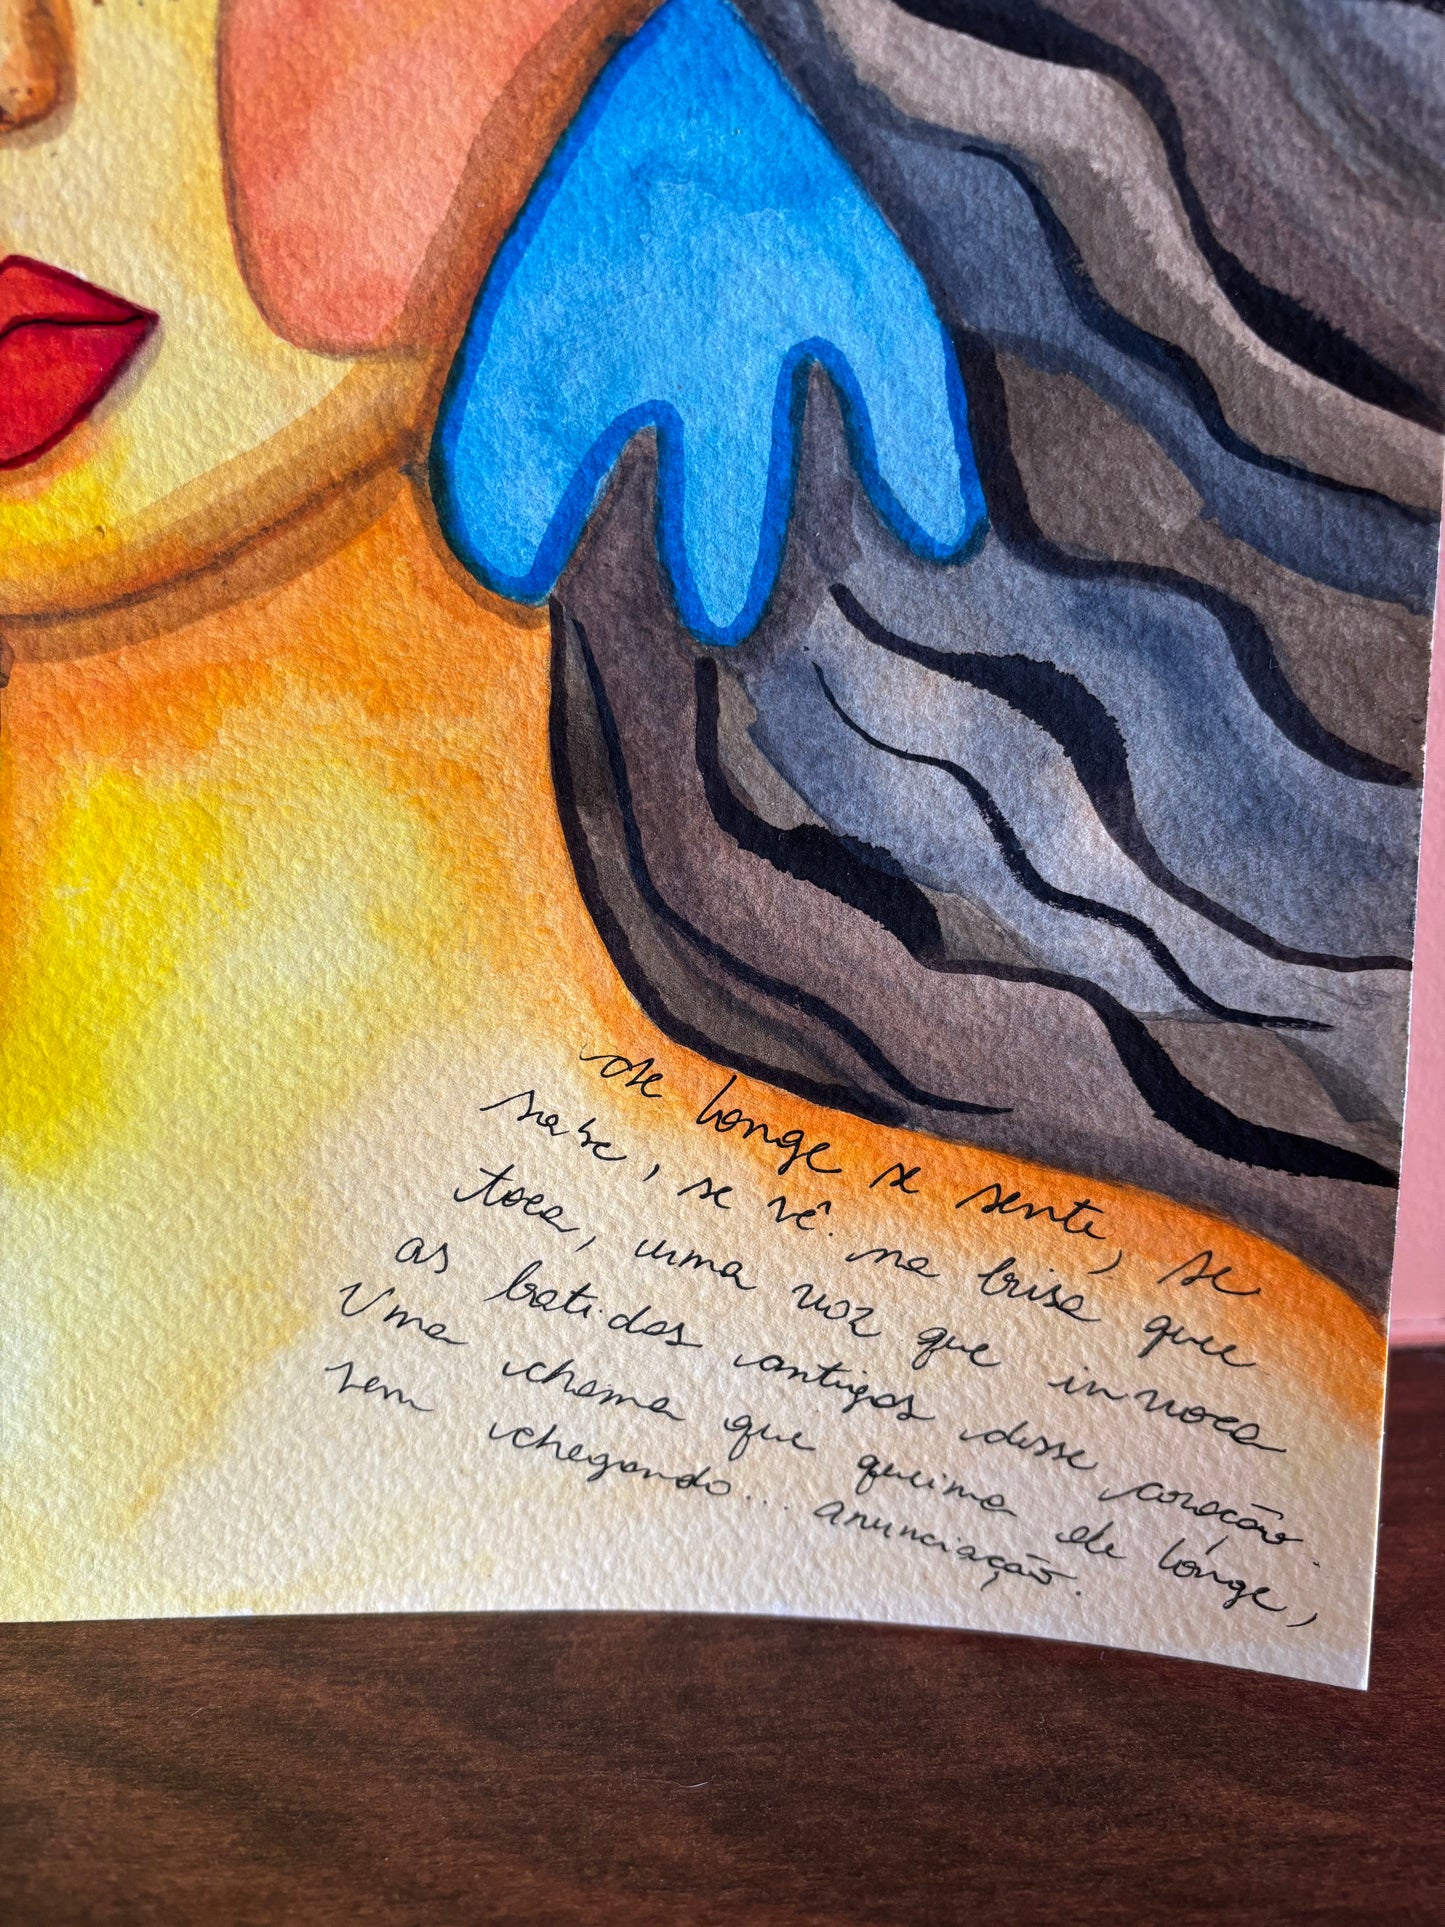 de longe se sente, se
sabe, se vê. na brisa que
toca, uma voz que invoca
as batidas antigas desse coração.
Uma chama que queima de longe,
vem chegando... anunciação.